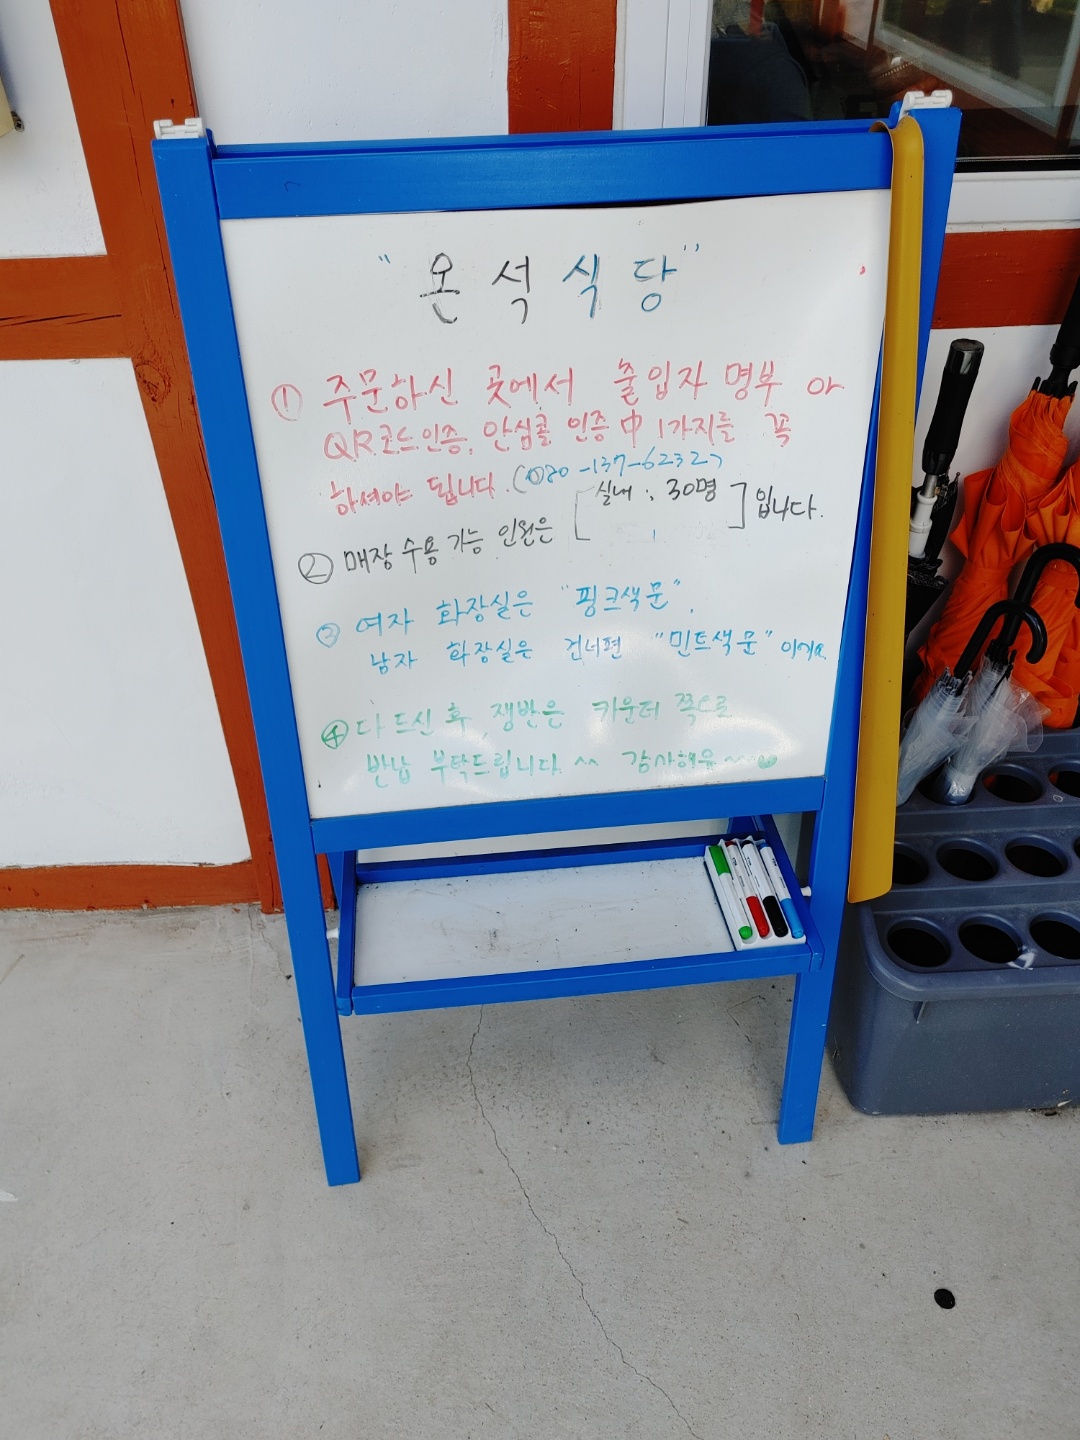 "온석식당"
① 주문하신 곳에서 출입자 명부 or
QR코드인증, 안심콜 인증 中 1가지를 꼭
하셔야 됩니다. (080-137-6232)
② 매장 수용 가능 인원은 [실내 : 30명] 입니다.
③ 여자 화장실은 "핑크색문",
남자 화장실은 건너편 "민트색문" 이에요
④ 다 드신 후, 쟁반은 카운터 쪽으로
반납 부탁드립니다 ^^ 감사해유~